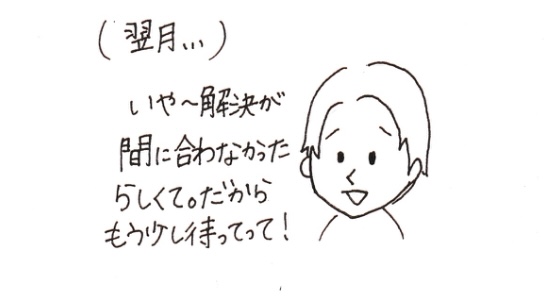 (翌月...)
いや〜解決が
間に合わなかった
らしくて。だから
もう少し待ってって!